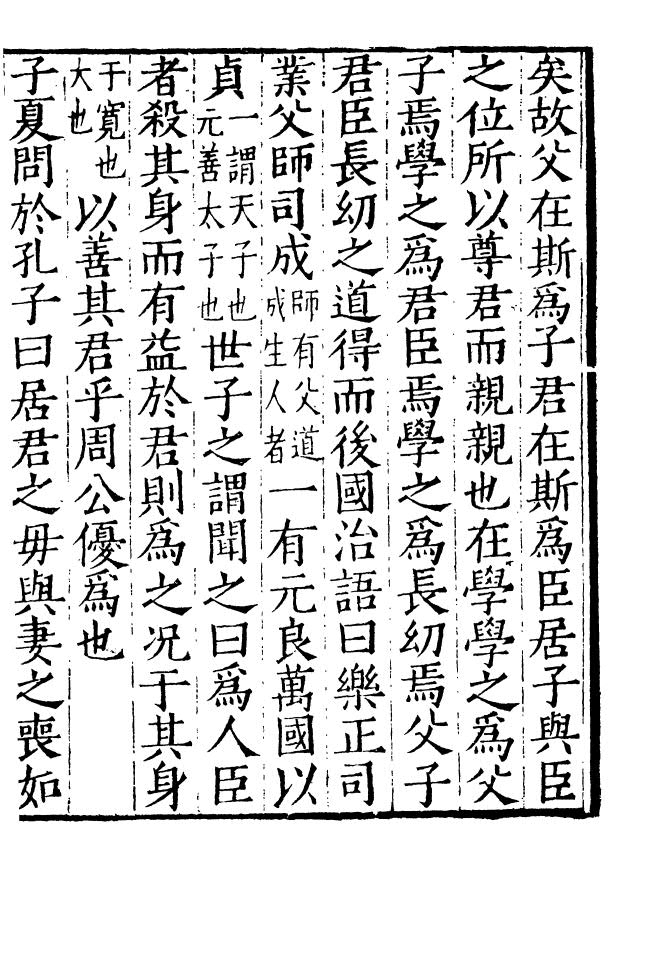 矣故父在斯爲子君在斯爲臣居子與臣
之位所以尊君而親親也在學學之爲父
子焉學之爲君臣焉學之爲長幼焉父子
君臣長幼之道得而後國治語曰樂正司
業父師司成師有父道成生人者一有元良萬國以
貞一謂天子也元善太子也世子之謂聞之曰爲人臣
者殺其身而有益於君則爲之况于其身
于寛也大也以善其君乎周公優爲也
子夏問於孔子曰居君之毋與妻之喪如